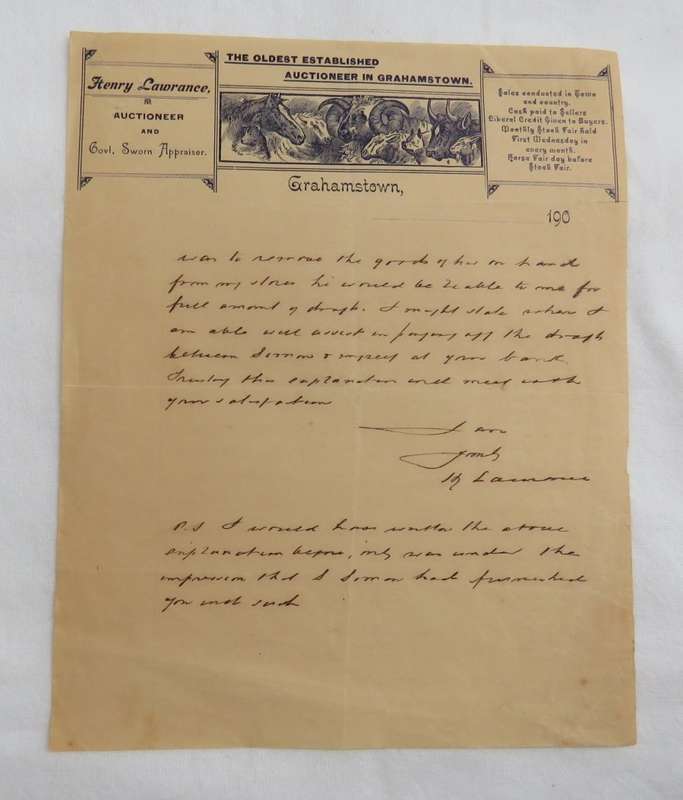 Henry Lawrance,
AUCTIONEER
AND
Govt. Sworn Appraiser.
THE OLDEST ESTABLISHED
AUCTIONEER IN GRAHAMSTOWN.
Sales conducted in Town
and country.
Cash paid to Sellers
Liberal Credit Given to Buyers.
Monthly Stock Fair held
First Wednesday in
every month.
Horse Fair day before
Stock Fair.
Grahamstown,
190
was to remove the goods of his on hand
from my stores he would be liable to me for
full amount of draft. I might state when I
am able will assist in paying off the draft
between Simon & myself at your bank.
Trusting this explanation will meet with
your satisfaction
I am
Hy Lawrance
P.S I would have written the above
explanation before, only was under the
impression that S Simon had furnished
you with such